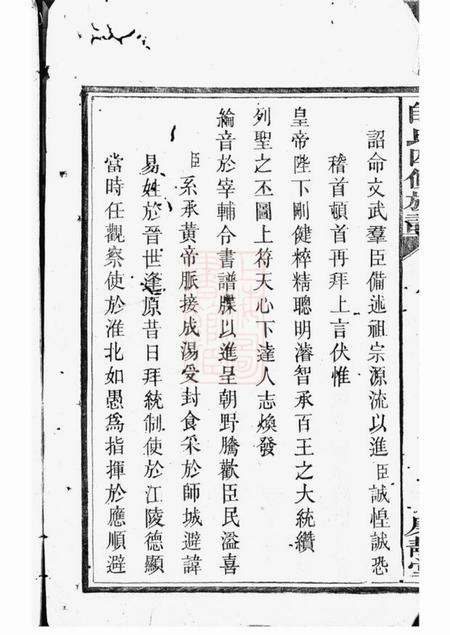 詔命文武羣臣備述祖宗源流以進臣誠惶誠恐
稽首頓首再拜上言伏惟
皇帝陛下剛健粹精聰明濬智承百王之大統纘
列聖之丕圖上符天心下達人志煥發
綸音於宰輔令書譜牒以進呈朝野騰歡臣民溢喜
臣系承黃帝脈接成湯受封食采於師城避諱
易姓於晉世逢原昔日拜統制使於江陵德顯
當時任觀察使於淮北如愚爲指揮於應順避